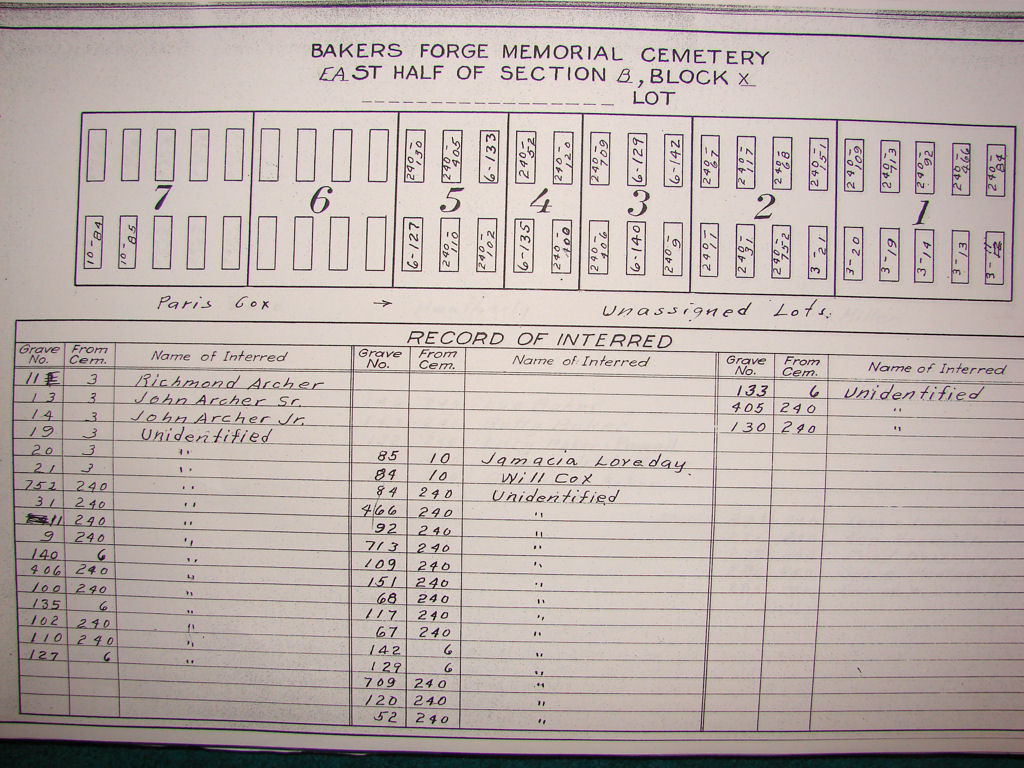 BAKERS FORGE MEMORIAL CEMETERY
EAST HALF OF SECTION B, BLOCK X
LOT
240-130 240-405 6-133 240-52 240-120 240-709 6-129 6-142 240-67 240-117 240-68 240-151 240-109 240-713 240-92 240-466 240-84
7 6 5 4 3 2 1
10-84 10-85 6-127 240-110 240-102 6-135 240-100 240-406 6-140 240-9 240-11 240-31 240-752 3-21 3-20 3-19 3-14 3-13 3-11
Paris Cox → Unassigned Lots.
RECORD OF INTERRED
Grave No. From Cem. Name of Interred Grave No. From Cem. Name of Interred Grave No. From Cem. Name of Interred
11 3 Richmond Archer
13 3 John Archer Sr.
14 3 John Archer Jr.
19 3 Unidentified
20 3 "
21 3 "
752 240 "
31 240 "
11 240 "
9 240 "
140 6 "
406 240 "
100 240 "
135 6 "
102 240 "
110 240 "
127 6 "
85 10 Jamacia Loveday
84 10 Will Cox
84 240 Unidentified
466 240 "
92 240 "
713 240 "
109 240 "
151 240 "
68 240 "
117 240 "
67 240 "
142 6 "
129 6 "
709 240 "
120 240 "
52 240 "
133 6 Unidentified
405 240 "
130 240 "